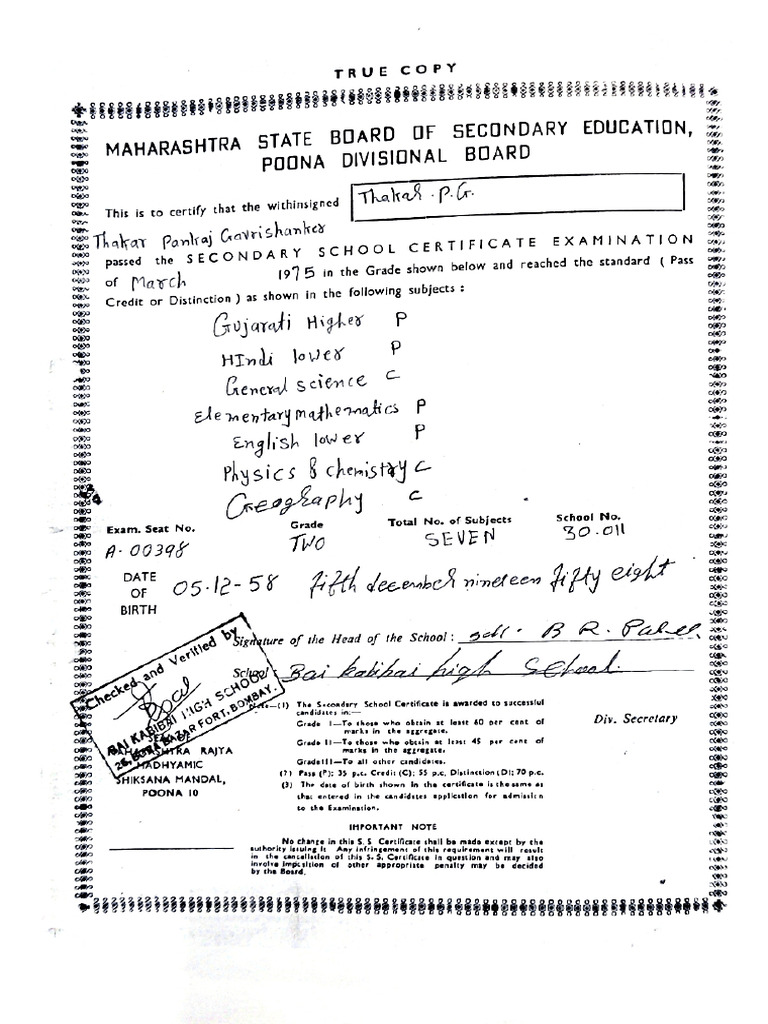 TRUE COPY
MAHARASHTRA STATE BOARD OF SECONDARY EDUCATION,
POONA DIVISIONAL BOARD
This is to certify that the withinsigned Thakar . P. G.
Thakar Pankaj Gavrishanker
passed the SECONDARY SCHOOL CERTIFICATE EXAMINATION
of March 1975 in the Grade shown below and reached the standard ( Pass
Credit or Distinction ) as shown in the following subjects :
Gujarati Higher P
HIndi lower P
General science C
Elementary mathematics P
English lower P
Physics & chemistry C
Geography C
Exam. Seat No. Grade Total No. of Subjects School No.
A-00398 TWO SEVEN 30.011
DATE OF BIRTH 05-12-58 fifth december nineteen fifty eight
Signature of the Head of the School : sd/- B R. Patel
School : Bai kabibai high School.
Checked and Verified by
BAI KABIBAI HIGH SCHOOL
BAZAR FORT, BOMBAY.
MAHARASHTRA RAJYA
MADHYAMIC
SHIKSANA MANDAL,
POONA 10
Note—(1) The Secondary School Certificate is awarded to successful
candidates in:—
Grade I—To those who obtain at least 60 per cent of
marks in the aggregate.
Grade II—To those who obtain at least 45 per cent of
marks in the aggregate.
Grade III—To all other candidates.
(2) Pass (P); 35 p.c. Credit (C); 55 p.c, Distinction (D); 70 p.c.
(3) The date of birth shown in the certificate is the same as
that entered in the candidates application for admission
to the Examination.
Div. Secretary
IMPORTANT NOTE
No change in this S. S Certificate shall be made except by the
authority issuing it Any infringement of this requirement will result
in the cancellation of this S. S. Certificate in question and may also
involve imposition of other appropriate penalty may be decided
by the Board.